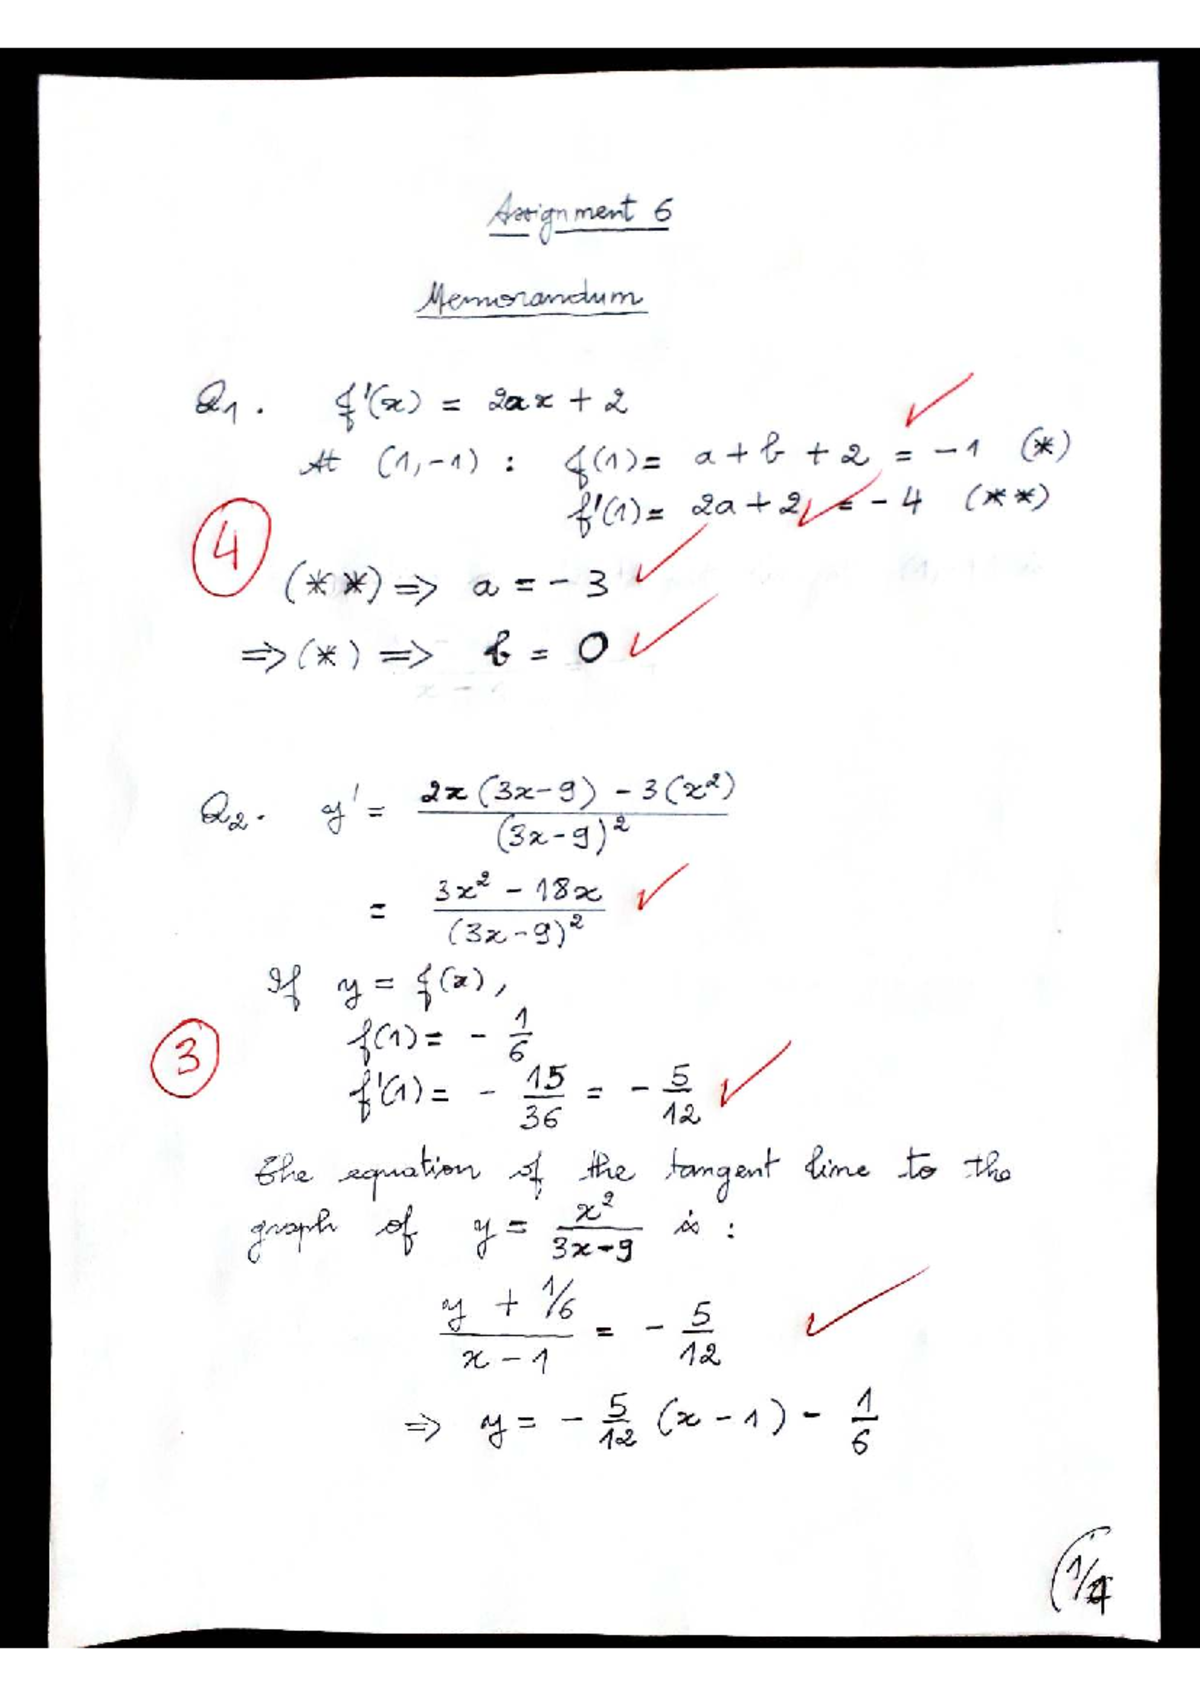 Assignment 6
Memorandum
Q1. f'(x) = 2ax + 2
At (1,-1) : f(1) = a + b + 2 = -1 (*)
f'(1) = 2a + 2 = -4 (**)
4
(**) => a = -3
=> (*) => b = 0
Q2. y' = 2x(3x-9) - 3(x²) / (3x-9)²
= 3x² - 18x / (3x-9)²
If y = f(x),
f(1) = - 1/6
3
f'(1) = - 15/36 = - 5/12
The equation of the tangent line to the
graph of y = x² / 3x-9 is :
y + 1/6 / x - 1 = - 5/12
=> y = - 5/12 (x - 1) - 1/6
(1/4